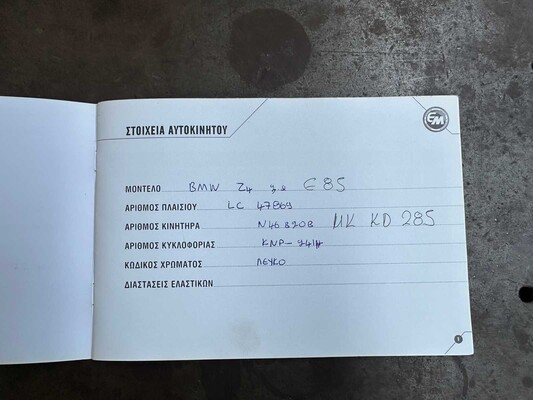 EM
ΣΤΟΙΧΕΙΑ ΑΥΤΟΚΙΝΗΤΟΥ
ΜΟΝΤΕΛΟ BMW Z4 E85
ΑΡΙΘΜΟΣ ΠΛΑΙΣΙΟΥ LC 47869
ΑΡΙΘΜΟΣ ΚΙΝΗΤΗΡΑ N46B20B MK KD 285
ΑΡΙΘΜΟΣ ΚΥΚΛΟΦΟΡΙΑΣ
ΚΩΔΙΚΟΣ ΧΡΩΜΑΤΟΣ ΛΕΥΚΟ
ΔΙΑΣΤΑΣΕΙΣ ΕΛΑΣΤΙΚΩΝ
1